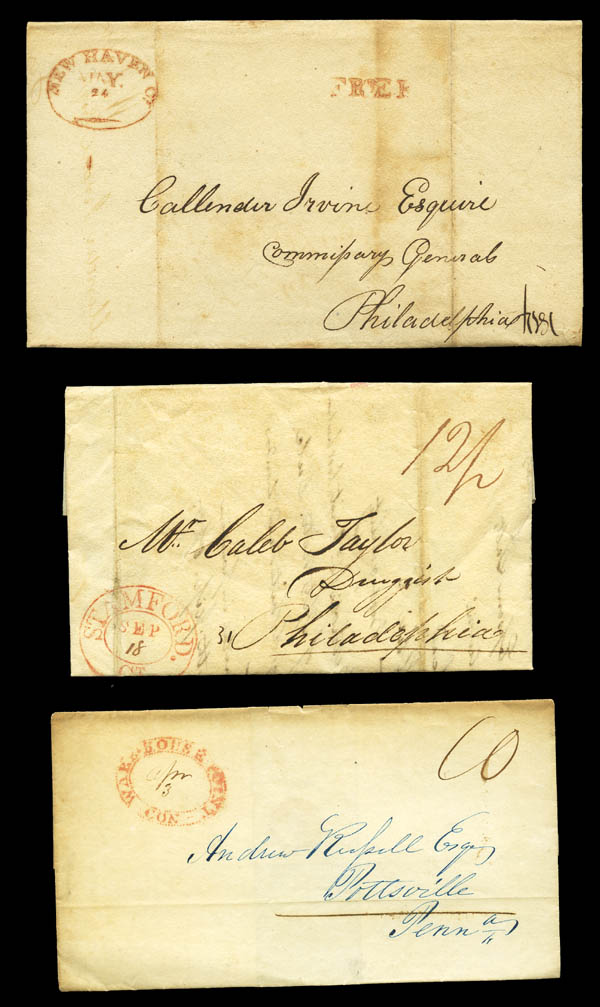 NEW HAVEN Ct
MAY.
24
FREE
Callender Irvine Esquire
Commissary General
Philadelphia
Mr. Caleb Taylor
Druggist
31 Philadelphia
12½
STAMFORD.
SEP
18
CT
WARE-HOUSE POINT
apr
3
CON
10
Andrew Russell Esq
Pottsville
Penna